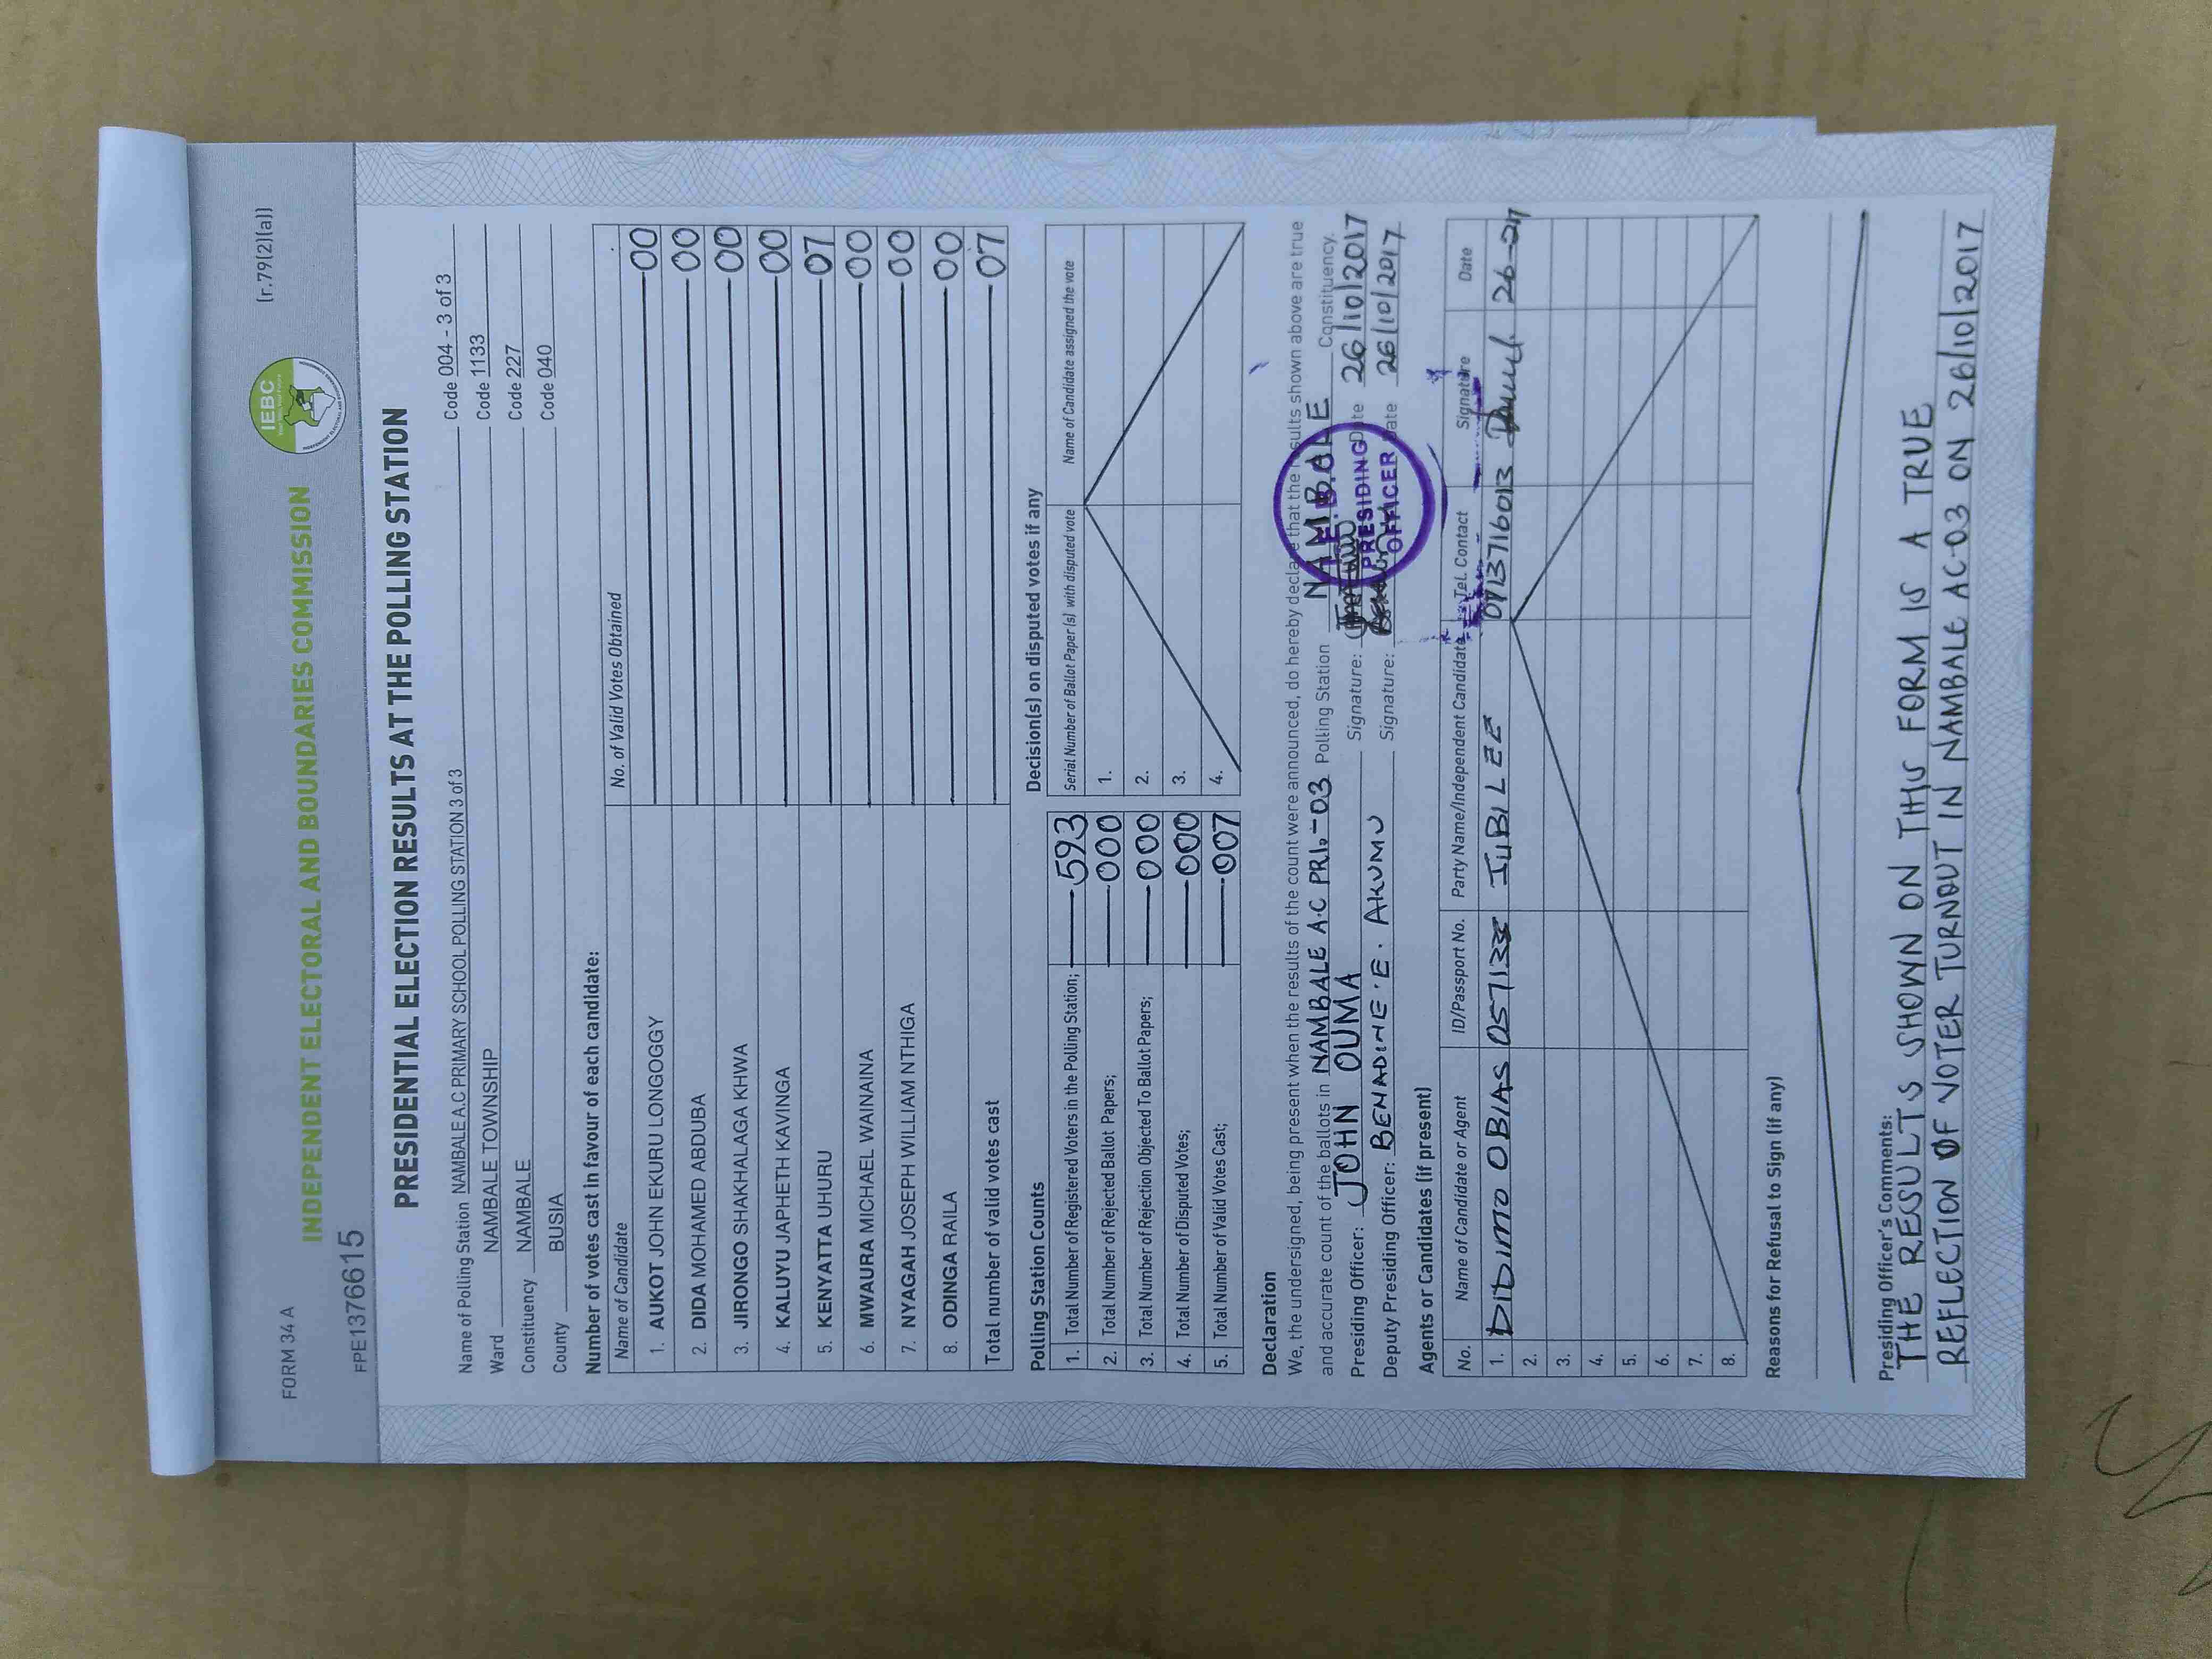 FORM 34 A
(r.79(2)(a))
IEBC
INDEPENDENT ELECTORAL AND BOUNDARIES COMMISSION
FPE1376615
PRESIDENTIAL ELECTION RESULTS AT THE POLLING STATION
Name of Polling Station NAMBALE A.C PRIMARY SCHOOL POLLING STATION 3 of 3 Code 004 - 3 of 3
Ward NAMBALE TOWNSHIP Code 1133
Constituency NAMBALE Code 227
County BUSIA Code 040
Number of votes cast in favour of each candidate:
Name of Candidate No. of Valid Votes Obtained
1. AUKOT JOHN EKURU LONGOGGY 00
2. DIDA MOHAMED ABDUBA 00
3. JIRONGO SHAKHALAGA KHWA 00
4. KALUYU JAPHETH KAVINGA 00
5. KENYATTA UHURU 07
6. MWAURA MICHAEL WAINAINA 00
7. NYAGAH JOSEPH WILLIAM NTHIGA 00
8. ODINGA RAILA 00
Total number of valid votes cast 07
Polling Station Counts
1. Total Number of Registered Voters in the Polling Station; 593
2. Total Number of Rejected Ballot Papers; 000
3. Total Number of Rejection Objected To Ballot Papers; 000
4. Total Number of Disputed Votes; 000
5. Total Number of Valid Votes Cast; 007
Decision(s) on disputed votes if any
Serial Number of Ballot Paper (s) with disputed vote Name of Candidate assigned the vote
1.
2.
3.
4.
Declaration
We, the undersigned, being present when the results of the count were announced, do hereby declare that the results shown above are true
and accurate count of the ballots in NAMBALE A.C PRI.-03 Polling Station NAMBALE Constituency.
Presiding Officer: JOHN OUMA Signature: Date 26/10/2017
Deputy Presiding Officer: BENADINE . E . AKUMU Signature: Date 26/10/2017
PRESIDING
OFFICER
Agents or Candidates (if present)
No. Name of Candidate or Agent ID/Passport No. Party Name/Independent Candidate Tel. Contact Signature Date
1. DIDIMO OBIAS JUBILEE 0713716013
2.
3.
4.
5.
6.
7.
8.
Reasons for Refusal to Sign (if any)
Presiding Officer's Comments:
THE RESULTS SHOWN ON THIS FORM IS A TRUE
REFLECTION OF VOTER TURNOUT IN NAMBALE AC-03 ON 26/10/2017